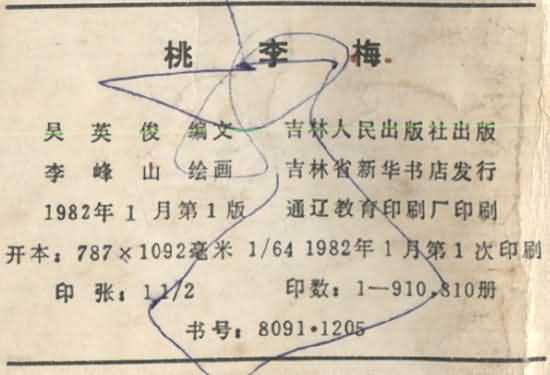 桃 李 梅
吴 英 俊 编文 吉林人民出版社出版
李 峰 山 绘画 吉林省新华书店发行
1982年1月第1版 通辽教育印刷厂印刷
开本：787×1092毫米 1/64 1982年1月第1次印刷
印 张：1 1/2 印数：1—910,810册
书号：8091·1205